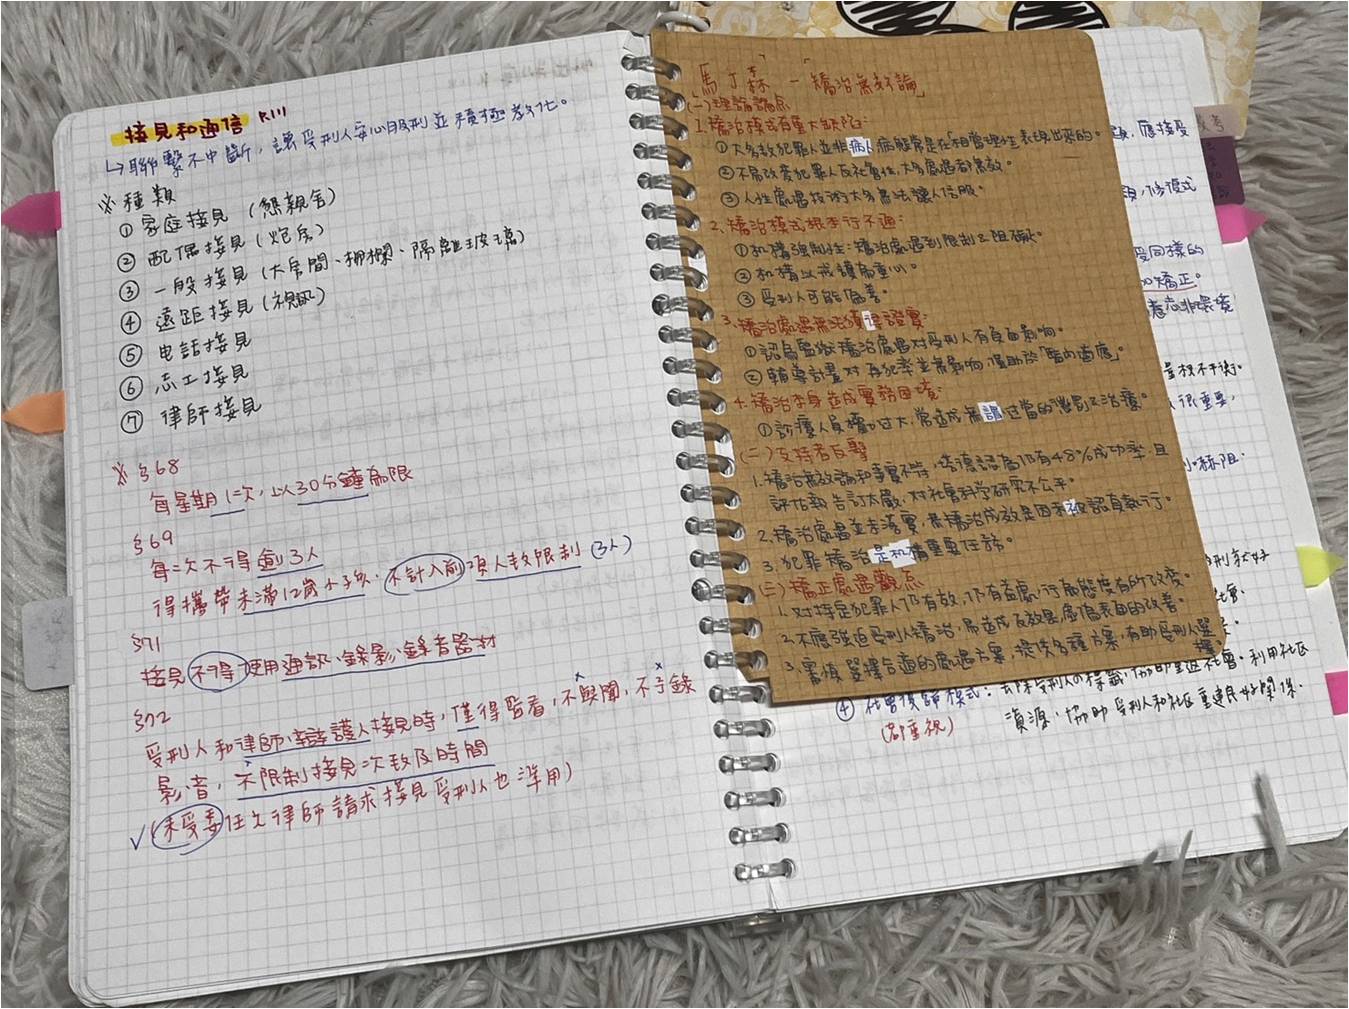 接見和通信 P.111
↳聯繫不中斷，讓受刑人安心服刑並積極教化。
※種類
① 家庭接見（懇親舍）
② 配偶接見（炮房）
③ 一般接見（大房間、柵欄、隔離玻璃）
④ 遠距接見（視訊）
⑤ 电話接見
⑥ 志工接見
⑦ 律師接見
※ §68
每星期1次，以30分鐘為限
§69
每次不得逾3人
得攜帶未滿12歲小孩，不計入前項人數限制（3人）
§71
接見不得使用通訊、錄影、錄音器材
§72
受刑人和律師、辯護人接見時，僅得監看，不與聞，不予錄
影音，不限制接見次數及時間
✓（未受委任之律師請求接見受刑人也準用）
「馬丁森 — 矯治無效論」
(一)理論論点
1.矯治模式有重大缺陷：
①大多數犯罪人並非病人，病態常是在「相當理性」表現出來的。
②不易改變犯罪人反社會性，大多處遇都無效。
③人性處遇技術大多無法讓人信服。
2.矯治模式根本行不通：
①机構強制性：矯治處遇受到限制及阻礙。
②机構以戒護為重心。
③受刑人可能偽善。
3.矯治處遇無法獲得證實：
①認為監獄矯治處遇對受刑人有負面影响。
②輔導計畫对再犯率並無影响，僅助於「監內適應」。
4.矯治本身造成實務困境：
①診療人員權力过大，常造成無謂过當的懲罰及治療。
(二)支持者反擊
1.矯治無效論和事實不符，帕德認為仍有48%成功率，且
評估報告訂太嚴，对社會科学研究不公平。
2.矯治處遇並未落實，無矯治成效是因未被認真執行。
3.犯罪矯治是机構重要任務。
(三)矯正處遇觀点
1.对特定犯罪人仍有效，仍有益處，行為態度有所改變。
2.不應強迫受刑人矯治，易造成反效果，虛偽表面的改善。
3.需慎選擇合適的處遇方案，提供多種方案，有助受刑人選擇。
應接受
受同樣的
矯正。
量权不平衡。
很重要，
④ 社會復歸模式：去除受刑人的標籤，協助重返社會。利用社區
（都重視）
資源，協助受刑人和社區重建良好関係。